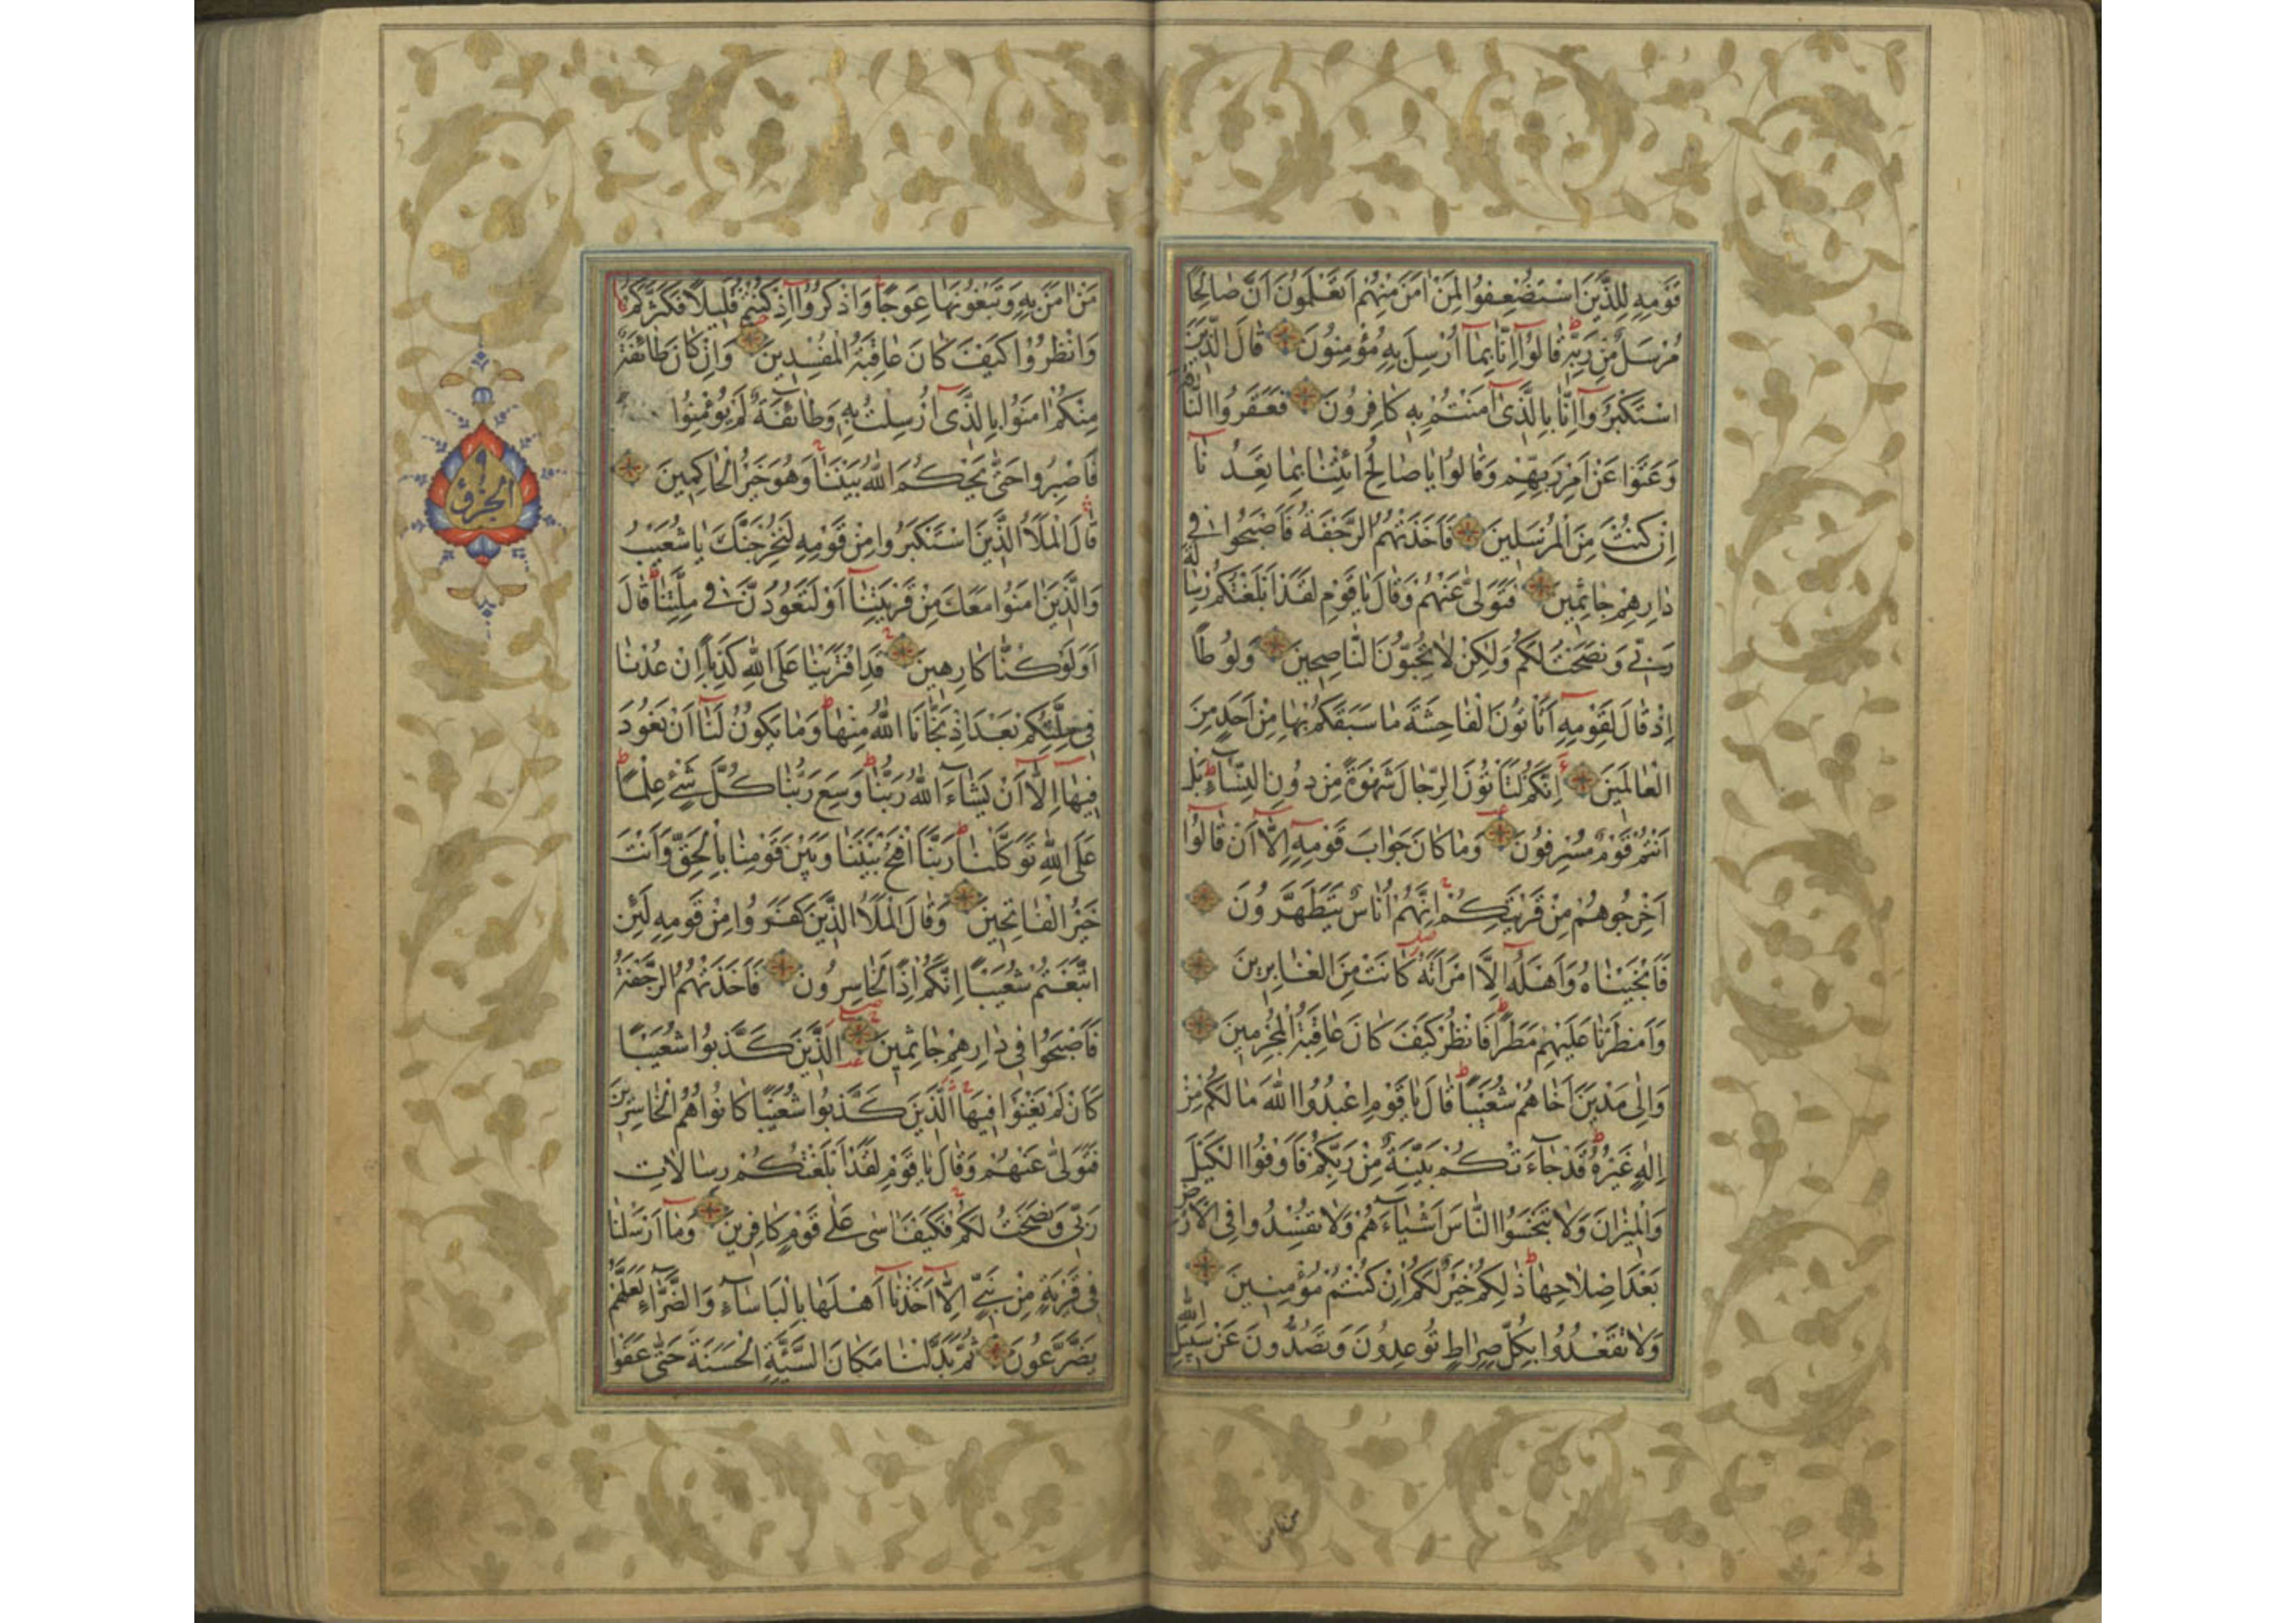 قَوْمِهِ لِلَّذِينَ اسْتُضْعِفُوا لِمَنْ اٰمَنَ مِنْهُمْ اَتَعْلَمُونَ اَنَّ صَالِحًا
مُرْسَلٌ مِنْ رَبِّهِ قَالُوا اِنَّا بِمَا اُرْسِلَ بِهِ مُؤْمِنُونَ قَالَ الَّذِينَ
اسْتَكْبَرُوا اِنَّا بِالَّذِى اٰمَنْتُمْ بِهِ كَافِرُونَ فَعَقَرُوا النَّاقَةَ
وَعَتَوْا عَنْ اَمْرِ رَبِّهِمْ وَقَالُوا يَا صَالِحُ ائْتِنَا بِمَا تَعِدُنَا
اِنْ كُنْتَ مِنَ الْمُرْسَلِينَ فَاَخَذَتْهُمُ الرَّجْفَةُ فَاَصْبَحُوا فِى
دَارِهِمْ جَاثِمِينَ فَتَوَلّٰى عَنْهُمْ وَقَالَ يَا قَوْمِ لَقَدْ اَبْلَغْتُكُمْ رِسَالَةَ
رَبِّى وَنَصَحْتُ لَكُمْ وَلٰكِنْ لَا تُحِبُّونَ النَّاصِحِينَ وَلُوطًا
اِذْ قَالَ لِقَوْمِهِ اَتَأْتُونَ الْفَاحِشَةَ مَا سَبَقَكُمْ بِهَا مِنْ اَحَدٍ مِنَ
الْعَالَمِينَ اِنَّكُمْ لَتَأْتُونَ الرِّجَالَ شَهْوَةً مِنْ دُونِ النِّسَاءِ بَلْ
اَنْتُمْ قَوْمٌ مُسْرِفُونَ وَمَا كَانَ جَوَابَ قَوْمِهِ اِلَّا اَنْ قَالُوا
اَخْرِجُوهُمْ مِنْ قَرْيَتِكُمْ اِنَّهُمْ اُنَاسٌ يَتَطَهَّرُونَ
فَاَنْجَيْنَاهُ وَاَهْلَهُ اِلَّا امْرَاَتَهُ كَانَتْ مِنَ الْغَابِرِينَ
وَاَمْطَرْنَا عَلَيْهِمْ مَطَرًا فَانْظُرْ كَيْفَ كَانَ عَاقِبَةُ الْمُجْرِمِينَ
وَاِلٰى مَدْيَنَ اَخَاهُمْ شُعَيْبًا قَالَ يَا قَوْمِ اعْبُدُوا اللّٰهَ مَا لَكُمْ مِنْ
اِلٰهٍ غَيْرُهُ قَدْ جَاءَتْكُمْ بَيِّنَةٌ مِنْ رَبِّكُمْ فَاَوْفُوا الْكَيْلَ
وَالْمِيزَانَ وَلَا تَبْخَسُوا النَّاسَ اَشْيَاءَهُمْ وَلَا تُفْسِدُوا فِى الْاَرْضِ
بَعْدَ اِصْلَاحِهَا ذٰلِكُمْ خَيْرٌ لَكُمْ اِنْ كُنْتُمْ مُؤْمِنِينَ
وَلَا تَقْعُدُوا بِكُلِّ صِرَاطٍ تُوعِدُونَ وَتَصُدُّونَ عَنْ سَبِيلِ اللّٰهِ
من امن
مَنْ اٰمَنَ بِهِ وَتَبْغُونَهَا عِوَجًا وَاذْكُرُوا اِذْ كُنْتُمْ قَلِيلًا فَكَثَّرَكُمْ
وَانْظُرُوا كَيْفَ كَانَ عَاقِبَةُ الْمُفْسِدِينَ وَاِنْ كَانَ طَائِفَةٌ
مِنْكُمْ اٰمَنُوا بِالَّذِى اُرْسِلْتُ بِهِ وَطَائِفَةٌ لَمْ يُؤْمِنُوا
فَاصْبِرُوا حَتّٰى يَحْكُمَ اللّٰهُ بَيْنَنَا وَهُوَ خَيْرُ الْحَاكِمِينَ
قَالَ الْمَلَاُ الَّذِينَ اسْتَكْبَرُوا مِنْ قَوْمِهِ لَنُخْرِجَنَّكَ يَا شُعَيْبُ
وَالَّذِينَ اٰمَنُوا مَعَكَ مِنْ قَرْيَتِنَا اَوْ لَتَعُودُنَّ فِى مِلَّتِنَا قَالَ
اَوَلَوْ كُنَّا كَارِهِينَ قَدِ افْتَرَيْنَا عَلَى اللّٰهِ كَذِبًا اِنْ عُدْنَا
فِى مِلَّتِكُمْ بَعْدَ اِذْ نَجَّانَا اللّٰهُ مِنْهَا وَمَا يَكُونُ لَنَا اَنْ نَعُودَ
فِيهَا اِلَّا اَنْ يَشَاءَ اللّٰهُ رَبُّنَا وَسِعَ رَبُّنَا كُلَّ شَىْءٍ عِلْمًا
عَلَى اللّٰهِ تَوَكَّلْنَا رَبَّنَا افْتَحْ بَيْنَنَا وَبَيْنَ قَوْمِنَا بِالْحَقِّ وَاَنْتَ
خَيْرُ الْفَاتِحِينَ وَقَالَ الْمَلَاُ الَّذِينَ كَفَرُوا مِنْ قَوْمِهِ لَئِنِ
اتَّبَعْتُمْ شُعَيْبًا اِنَّكُمْ اِذًا لَخَاسِرُونَ فَاَخَذَتْهُمُ الرَّجْفَةُ
فَاَصْبَحُوا فِى دَارِهِمْ جَاثِمِينَ الَّذِينَ كَذَّبُوا شُعَيْبًا
كَاَنْ لَمْ يَغْنَوْا فِيهَا الَّذِينَ كَذَّبُوا شُعَيْبًا كَانُوا هُمُ الْخَاسِرِينَ
فَتَوَلّٰى عَنْهُمْ وَقَالَ يَا قَوْمِ لَقَدْ اَبْلَغْتُكُمْ رِسَالَاتِ
رَبِّى وَنَصَحْتُ لَكُمْ فَكَيْفَ اٰسٰى عَلٰى قَوْمٍ كَافِرِينَ وَمَا اَرْسَلْنَا
فِى قَرْيَةٍ مِنْ نَبِىٍّ اِلَّا اَخَذْنَا اَهْلَهَا بِالْبَاْسَاءِ وَالضَّرَّاءِ لَعَلَّهُمْ
يَضَّرَّعُونَ ثُمَّ بَدَّلْنَا مَكَانَ السَّيِّئَةِ الْحَسَنَةَ حَتّٰى عَفَوْا
الجزؤ ٩